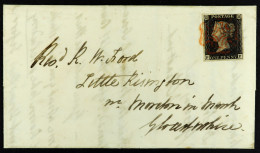 POSTAGE
ONE PENNY
Revd. R. W. Ford
Little Risington
nr Moreton in Marsh
Gloucestershire.